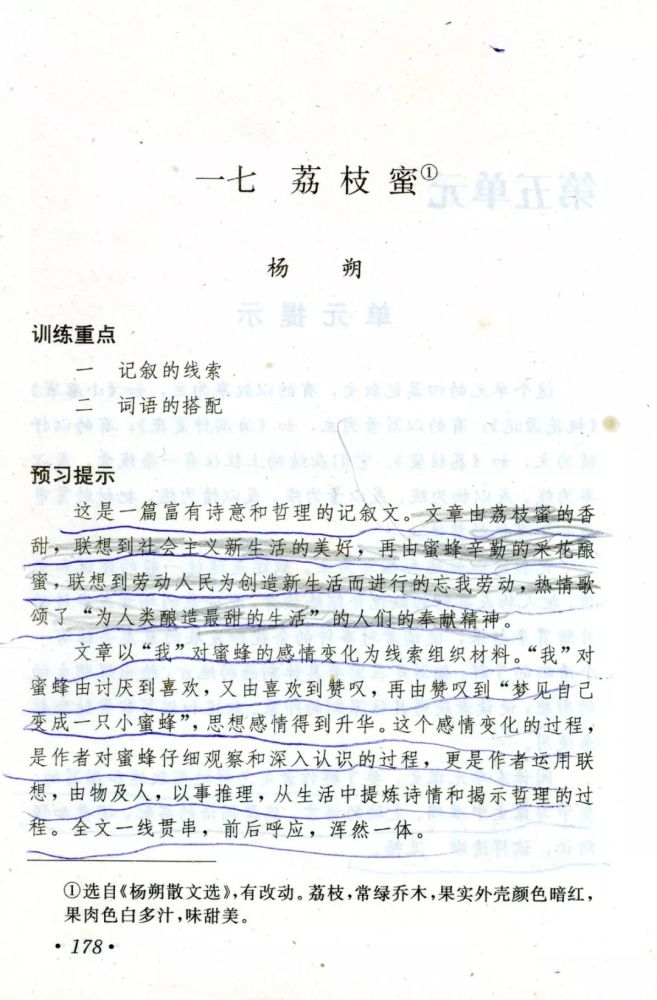 一七 荔枝蜜①
杨 朔
训练重点
一 记叙的线索
二 词语的搭配
预习提示
这是一篇富有诗意和哲理的记叙文。文章由荔枝蜜的香
甜，联想到社会主义新生活的美好，再由蜜蜂辛勤的采花酿
蜜，联想到劳动人民为创造新生活而进行的忘我劳动，热情歌
颂了“为人类酿造最甜的生活”的人们的奉献精神。
文章以“我”对蜜蜂的感情变化为线索组织材料。“我”对
蜜蜂由讨厌到喜欢，又由喜欢到赞叹，再由赞叹到“梦见自己
变成一只小蜜蜂”，思想感情得到升华。这个感情变化的过程，
是作者对蜜蜂仔细观察和深入认识的过程，更是作者运用联
想，由物及人，以事推理，从生活中提炼诗情和揭示哲理的过
程。全文一线贯串，前后呼应，浑然一体。
①选自《杨朔散文选》，有改动。荔枝，常绿乔木，果实外壳颜色暗红，
果肉色白多汁，味甜美。
·178·